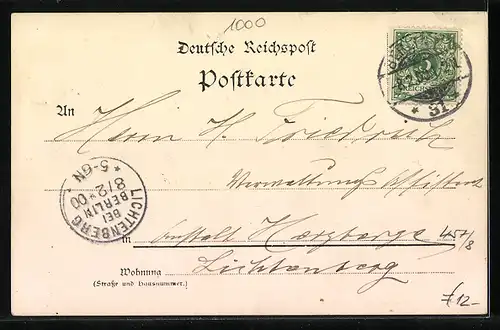 1000
Deutsche Reichspost
Postkarte
31
An
Herrn H. Friedrich
Verwaltungs Assistent
LICHTENBERG
BEI
BERLIN
8/2 00
* 5-6N *
in Anstalt Herzberge
Lichtenberg
Wohnung
(Straße und Hausnummer.)
12-